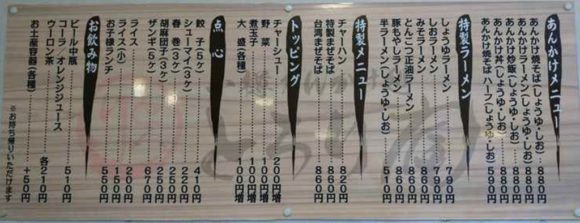 あんかけメニュー
あんかけ焼そば(しょうゆ・しお) 880円
あんかけラーメン(しょうゆ・しお) 880円
あんかけ炒飯(しょうゆ・しお) 880円
あんかけ丼(しょうゆ・しお) 880円
あんかけ焼そばハーフ(しょうゆ・しお) 580円
特製ラーメン
しょうゆラーメン 790円
しおラーメン 790円
みそラーメン
とんこつ正油ラーメン
豚もやしラーメン 860円
半ラーメン(しょうゆ・しお) 510円
特製メニュー
チャーハン 820円
特製まぜそば 860円
台湾まぜそば 860円
トッピング
チャーシュー 200円増
野菜 100円増
煮玉子 100円増
大盛(各種) 100円増
点心
餃子(5ヶ) 410円
シューマイ(3ヶ) 220円
春巻(3ヶ) 250円
胡麻団子(3ヶ) 250円
ザンギ(5ヶ) 670円
ライス 200円
ライス(小) 150円
お子様ランチ 550円
お飲み物
ビール中瓶 510円
コーラ オレンジジュース
ウーロン茶 各210円
お土産容器(各種) +50円
※お持ち帰りいただけます